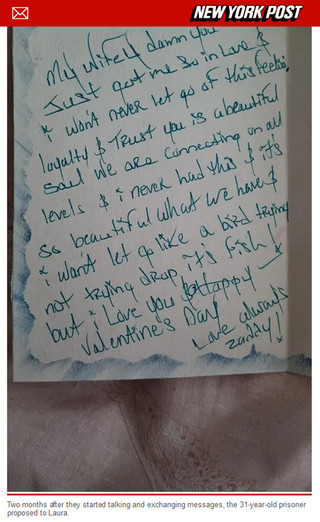 NEW YORK POST
My Wifely damn you
Just got me so in Love &
i won't never let go of this feelin.
loyalty & Trust you is a beautiful
soul we are connecting on all
levels & i never had this & it's
so beautiful what we have &
i won't let go like a bird trying
not trying drop it's fish!
but i Love you Happy
Valentine's Day
Love always
zaddy!
Two months after they started talking and exchanging messages, the 31-year-old prisoner
proposed to Laura.